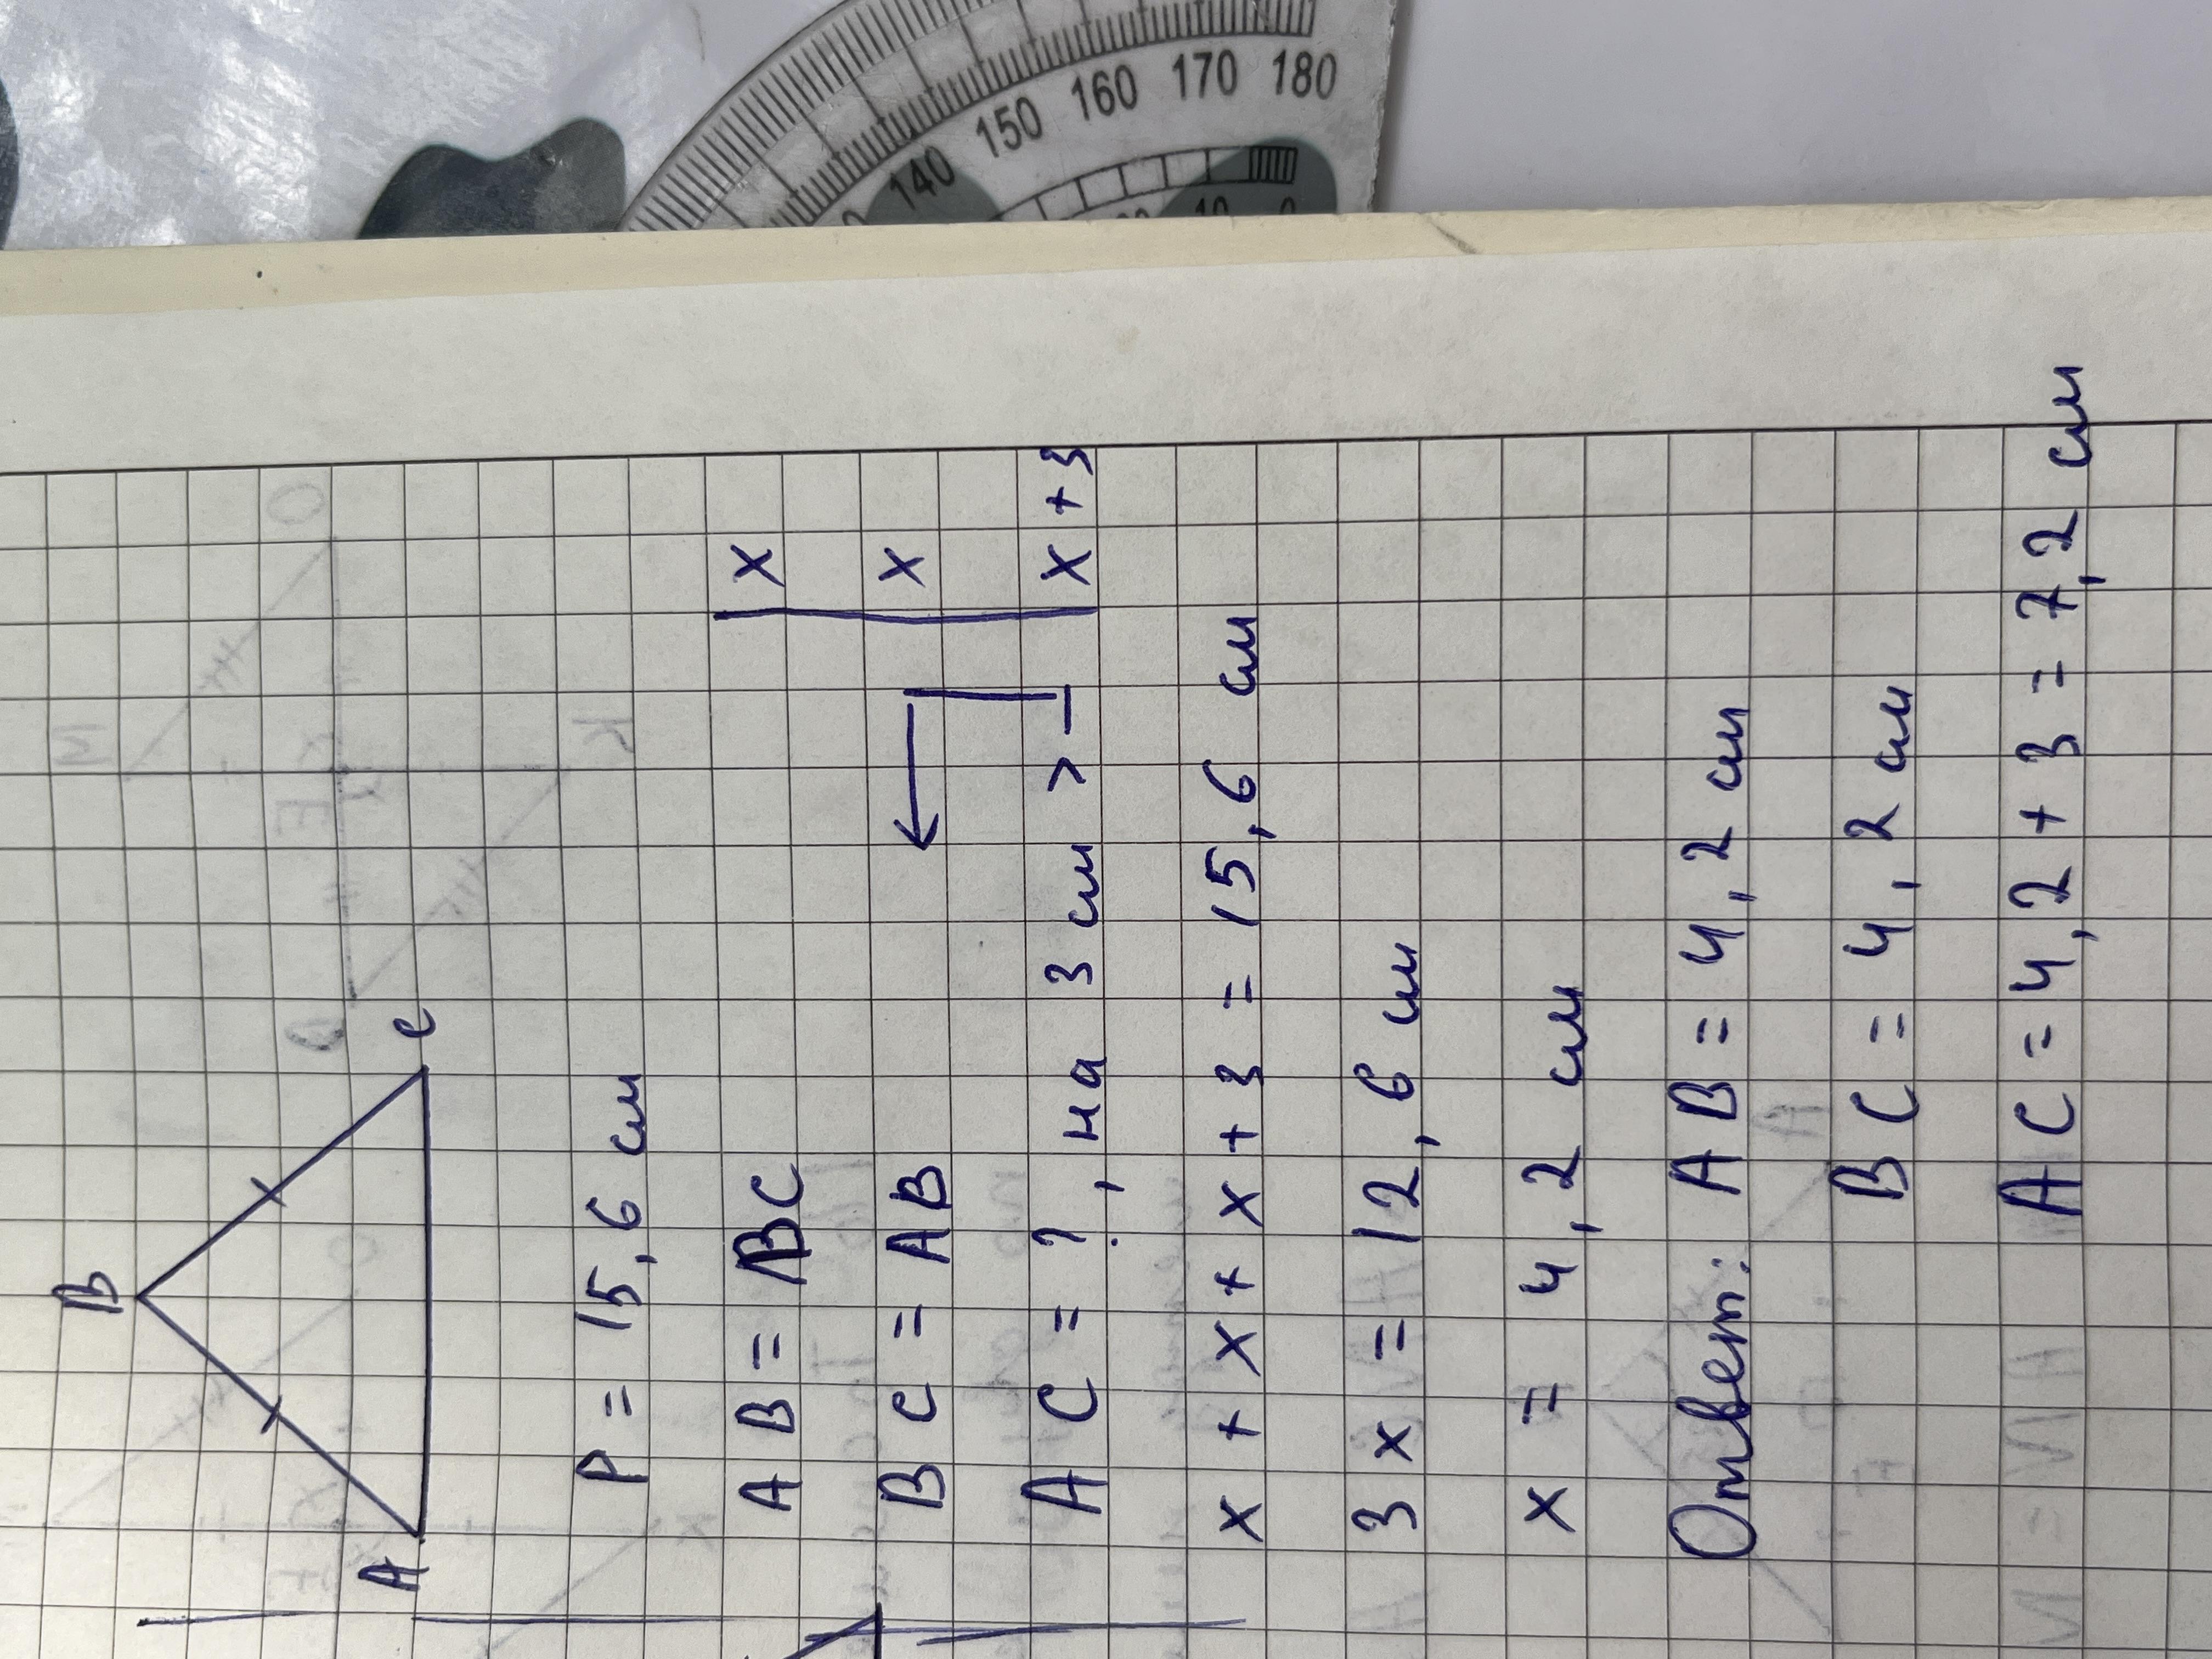 B
A C
P = 15,6 см
AB = BC x
BC = AB x
AC = ?, на 3 см > x + 3
x + x + x + 3 = 15,6 см
3x = 12,6 см
x = 4,2 см
Ответ: AB = 4,2 см
BC = 4,2 см
AC = 4,2 + 3 = 7,2 см
140 150 160 170 180
10 0